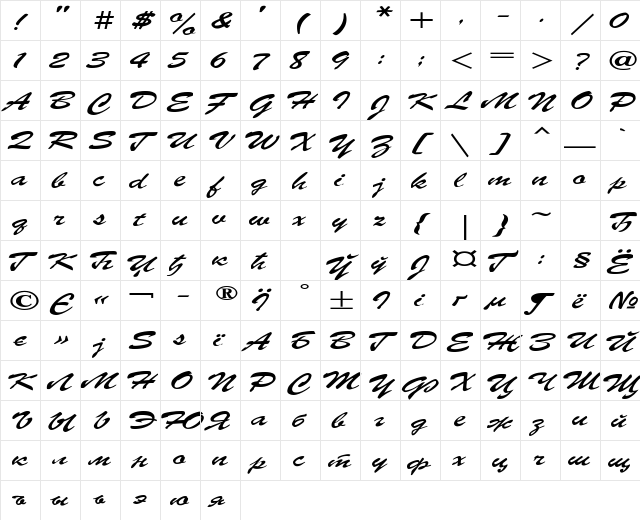 ! " # $ % & ' ( ) * + , - . / 0
1 2 3 4 5 6 7 8 9 : ; < = > ? @
A B C D E F G H I J K L M N O P
Q R S T U V W X Y Z [ \ ] ^ _ `
a b c d e f g h i j k l m n o p
q r s t u v w x y z { | } ~ Ђ
Ѓ Ќ Ћ Џ ђ ќ ћ Ў ў Ј ¤ Ґ : § Ё
© Є « ¬ - ® Ї ° ± І і ґ µ ¶ ё №
є » ј Ѕ ѕ ї А Б В Г Д Е Ж З И Й
К Л М Н О П Р С Т У Ф Х Ц Ч Ш Щ
Ъ Ы Ь Э Ю Я а б в г д е ж з и й
к л м н о п р с т у ф х ц ч ш щ
ъ ы ь э ю я